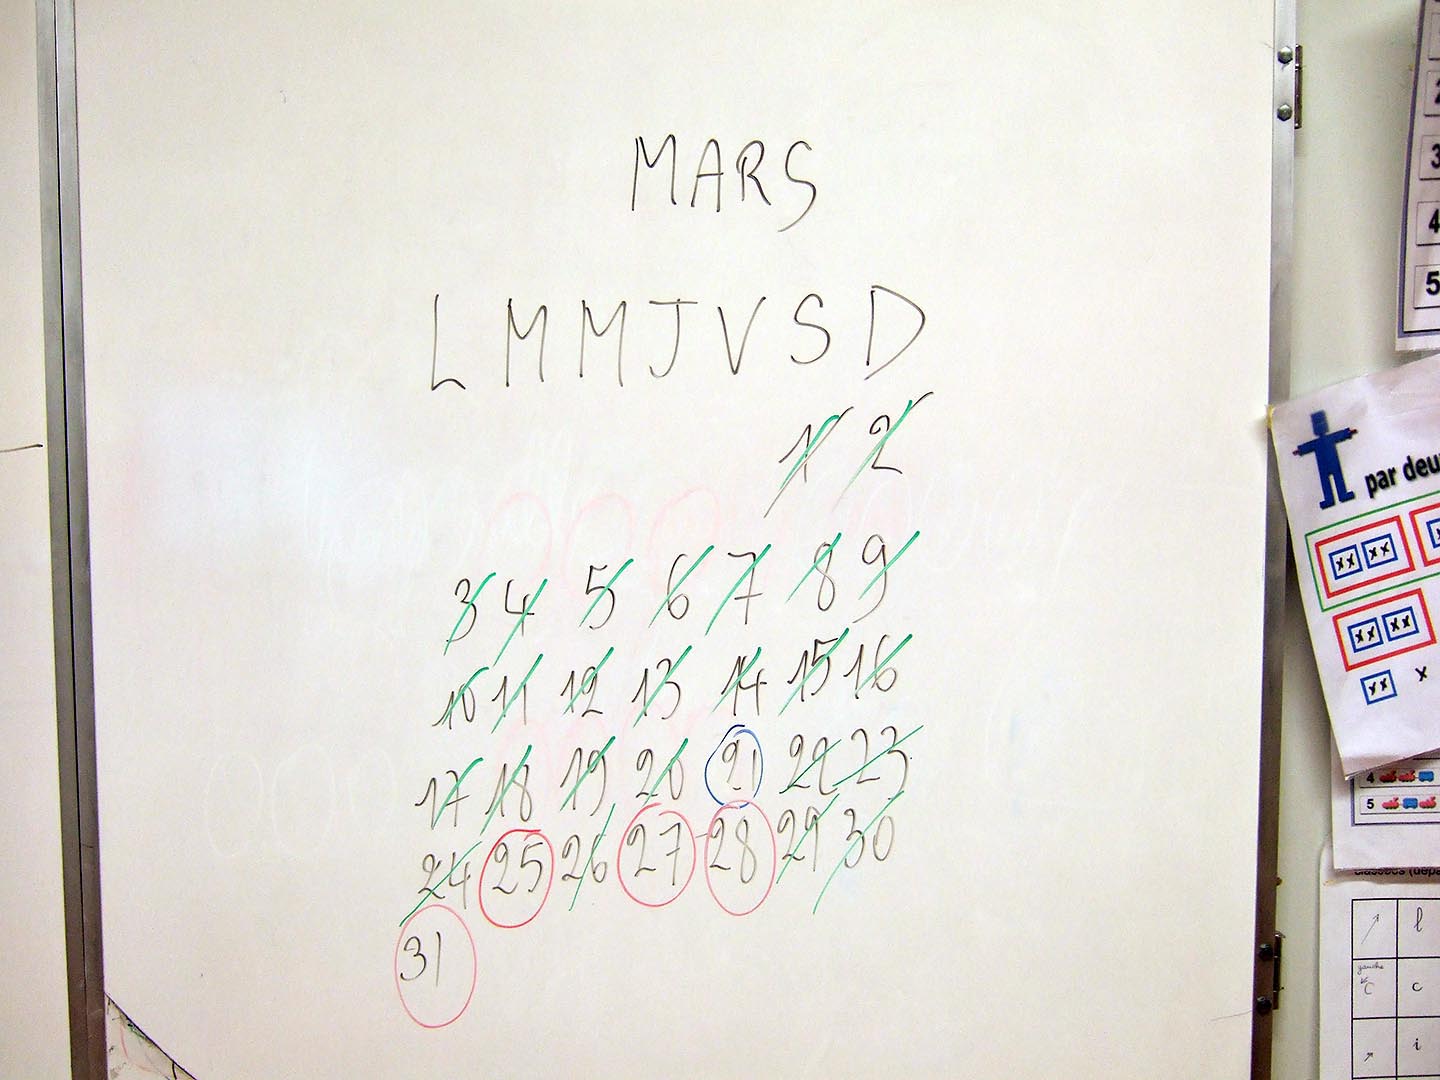 MARS
L M M J V S D
1 2
3 4 5 6 7 8 9
10 11 12 13 14 15 16
17 18 19 20 21 22 23
24 25 26 27 28 29 30
31
3
4
5
par deu
xx xx x
xx xx
xx x
4
5
classées (dépa
l
gauche
C c
i